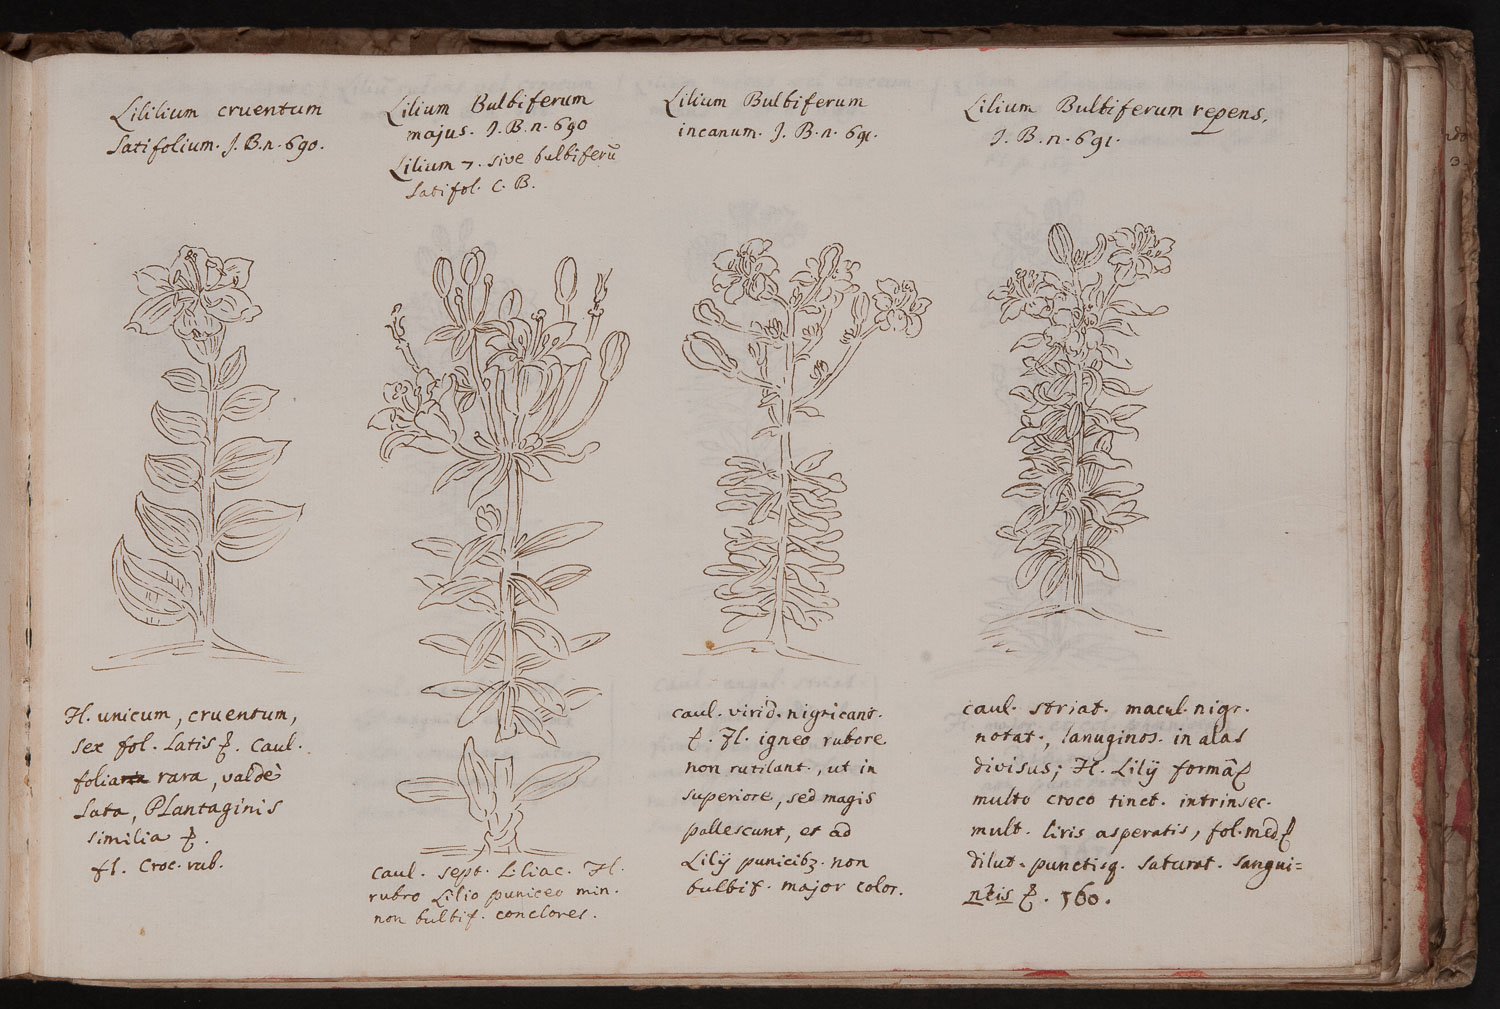 Lililium cruentum
latifolium. J. B. n. 690.
Lilium Bulbiferum
majus. J. B. n. 690
Lilium 7. sive bulbiferū
latifol. C. B.
Lilium Bulbiferum
incanum. J. B. n. 691.
Lilium Bulbiferum repens.
J. B. n. 691.
Fl. unicum, cruentum,
sex fol. latis . Caul.
folia rara, valdè
lata, Plantaginis
similia .
fl. croc. rub.
caul. sept. Liliac. Fl.
rubro Lilio puniceo min.
non bulbif. conclores.
caul. virid. nigricant.
Fl. igneo rubore
non rutilant., ut in
superiore, sed magis
pallescunt, et ad
Lilij punicibz. non
bulbif. major color.
caul. striat. macul. nigr.
notat., lanuginos. in alas
divisus; Fl. Lilij formā
multo croco tinct. intrinsec.
mult. liris asperatis, fol. med
dilut. punctisq. saturat. sangui=
neis . 360.